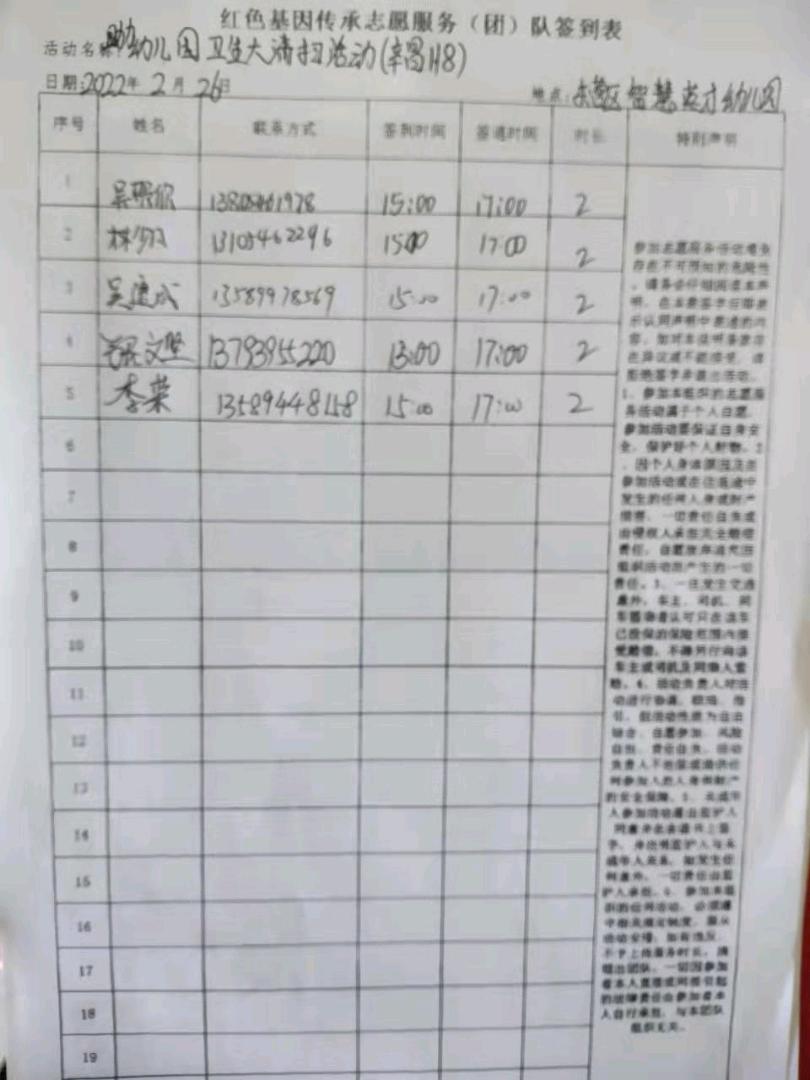 红色基因传承志愿服务（团）队签到表
活动名称：助幼儿园卫生大清扫活动
日期：2022年2月26日
地点：东营区智慧英才幼儿园
序号 姓名 联系方式 签到时间 签退时间 时长 特别声明
1 13808461978 15:00 17:00 2
2 13105462296 1500 17:00 2
3 吴建成 13589978569 15:00 17:00 2
4 13793955220 13:00 17:00 2
5 李荣 13589448158 15:00 17:00 2
6
7
8
9
10
11
12
13
14
15
16
17
18
19
参加志愿服务活动难免
存在不可预知的危险性
，请务必仔细阅读本声
明，在本表签字后即表
示认同声明中表述的内
容，如对本说明条款存
在异议或不能接受，请
拒绝签字并退出活动。
1、参加本组织的志愿服
务活动属于个人自愿，
参加活动要保证自身安
全，保护好个人财物。2
、因个人身体原因及在
参加活动或在往返途中
发生的任何人身或财产
损害，一切责任自负或
由侵权人承担完全赔偿
责任，自愿放弃追究因
组织活动所产生的一切
责任。3、一旦发生交通
意外，车主、司机、同
车搭乘者认可只在该车
已投保的保险范围内接
受赔偿，不得另行向该
车主或司机及同乘人索
赔。4、活动负责人对活
动进行协调、联络、指
引，但活动性质为自由
结合、自愿参加、风险
自担、责任自负，活动
负责人不担保或提供任
何参加人的人身和财产
的安全保障。5、未成年
人参加活动需由监护人
同意并在此表上签
字，并注明监护人与未
成年人关系，如发生任
何意外，一切责任由监
护人承担。6、参加本组
织的任何活动，必须遵
守相关规定制度，服从
活动安排，如有违反，
不予上传服务时长，清
退出团队，一切因参加
者本人直接或间接引起
的法律责任由参加者本
人自行承担，与本团队
组织无关。